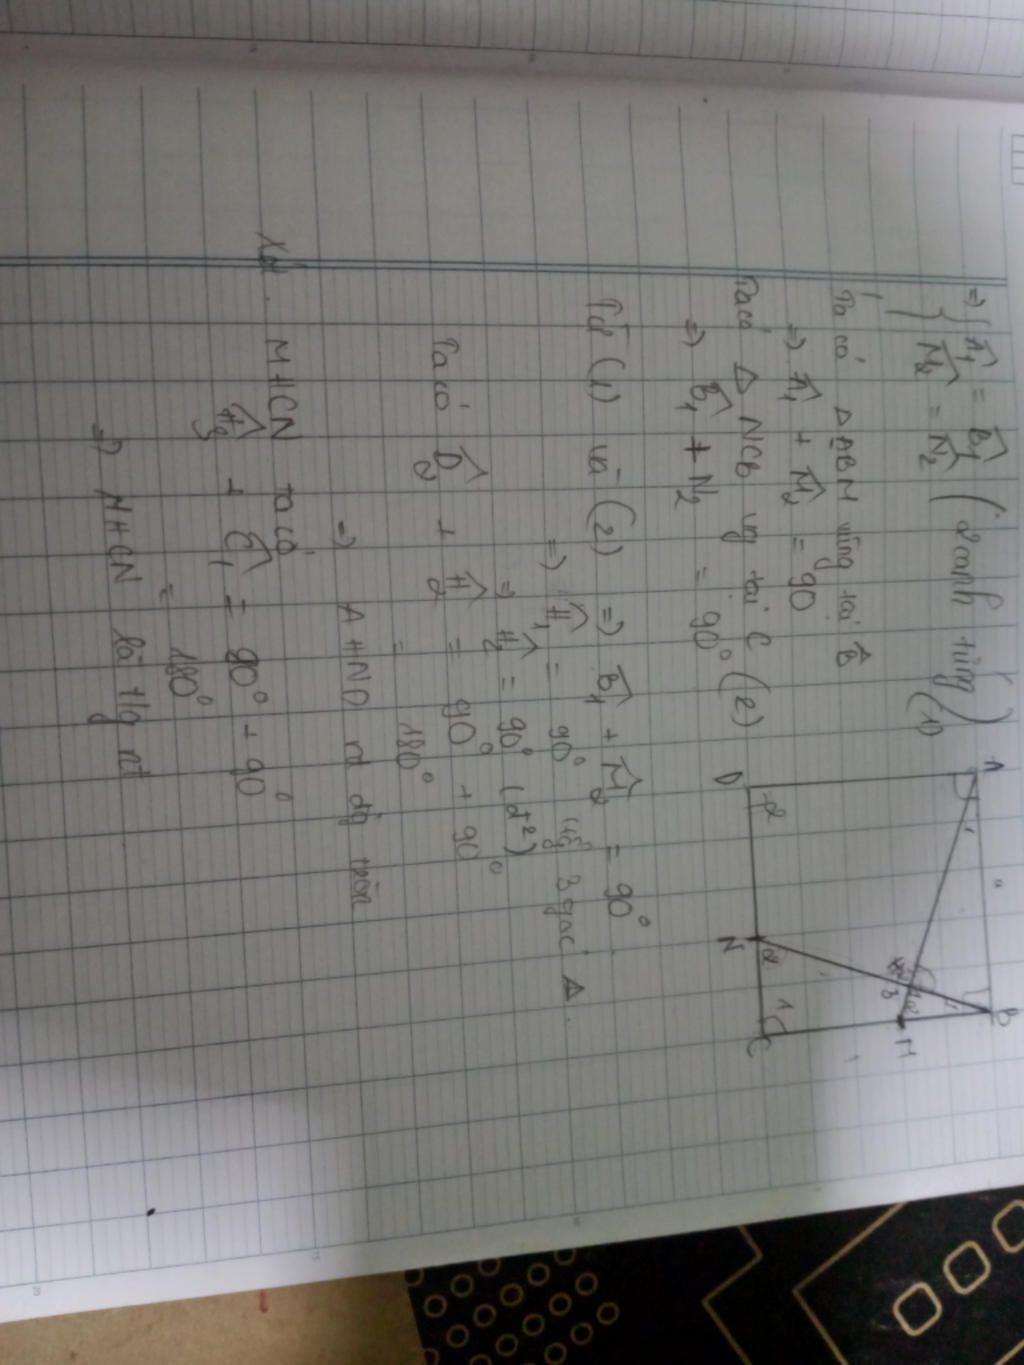 => { Â1 = B̂1
M̂2 = N̂2 (2 cạnh t/ứng)
Ta có ΔABM vuông tại B̂
=> Â1 + M̂2 = 90 (1)
Ta có Δ NCB vg tại C
=> B̂1 + N2 = 90° (2)
Từ (1) và (2) => B̂1 + M̂2 = 90°
=> Ĥ1 = 90° 3 góc Δ
=> Ĥ2 = 90° (đ²)
Ta có D̂2 + Ĥ2 = 90° + 90°
= 180°
=> AHND nt đg tròn
Xét MHCN ta có
Ĥ3 + Ĉ1 = 90° + 90°
= 180°
=> MHCN là t/g nt
A
1
B
1
1
2
3
M
D
2
N
2
1
C